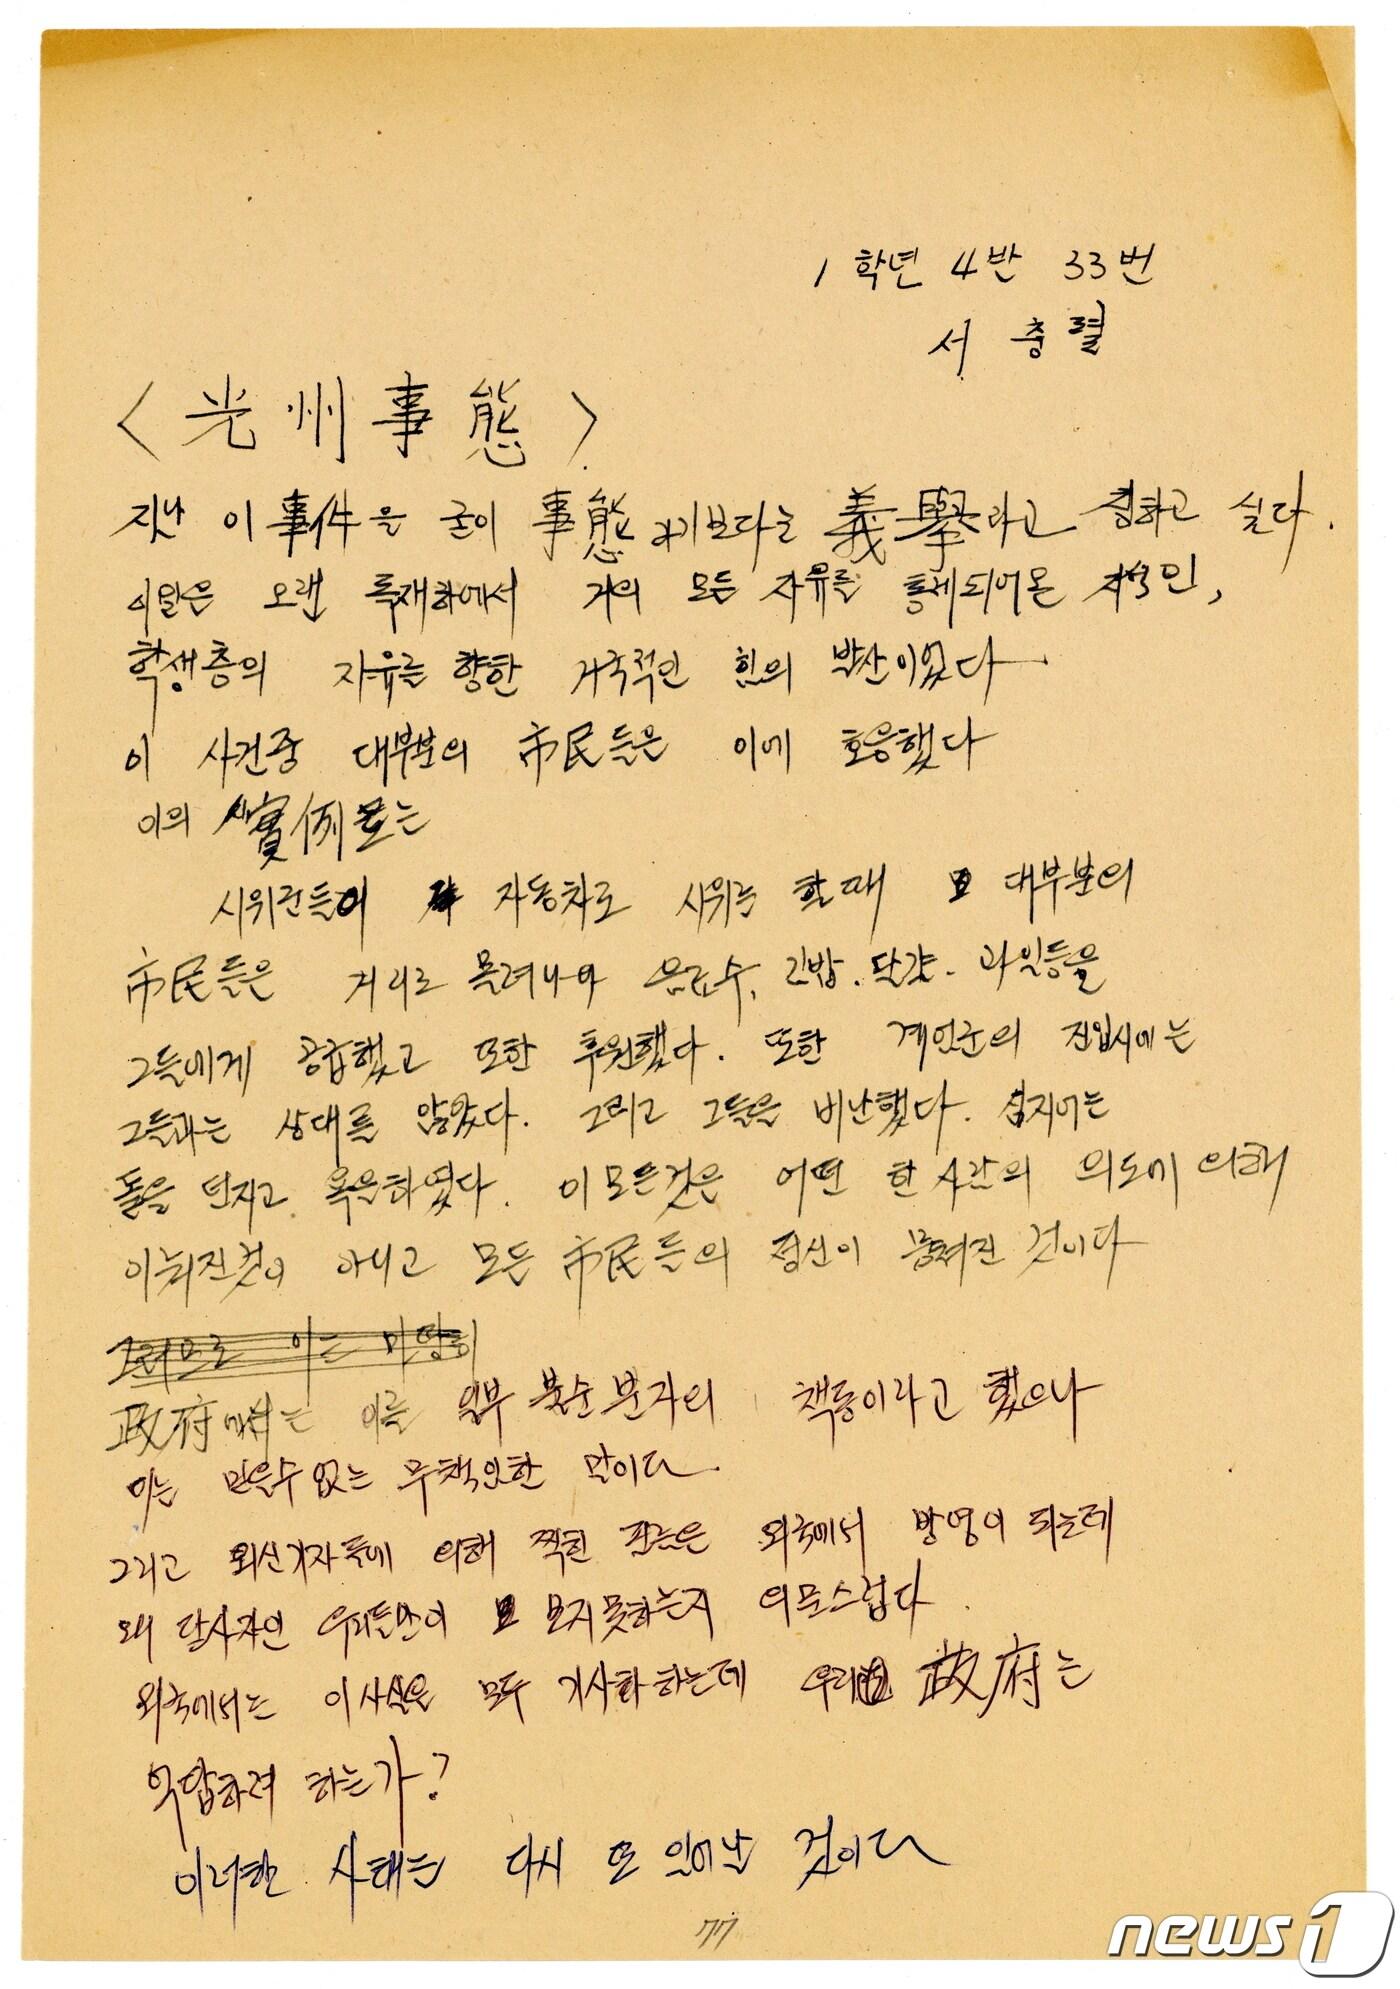 1학년 4반 33번
서 충렬
<光州事態>
지난 이 事件을 굳이 事態라기보다는 義擧라고 칭하고 싶다.
이말은 오랜 독재하에서 거의 모든 자유를 통제되어온 지식인,
학생층의 자유를 향한 거국적인 힘의 발산이었다
이 사건중 대부분의 市民들은 이에 호응했다
이의 實例로는
시위군들이 자동차로 시위를 할때 대부분의
市民들은 거리로 몰려나와 음료수, 김밥. 달걀. 과일등을
그들에게 공급했고 또한 후원했다. 또한 계엄군의 진입시에는
그들과는 상대를 않았다. 그리고 그들을 비난했다. 심지어는
돌을 던지고 욕을하였다. 이모든것은 어떤 한사람의 의도에 의해
이뤄진것이 아니고 모든 市民들의 정신이 뭉쳐진 것이다
그러므로 이는 마땅히
政府에서는 이를 일부 불순분자의 책동이라고 했으나
이는 믿을수없는 무책임한 말이다.
그리고 외신기자들에 의해 찍힌 필름은 외국에서 방영이 되는데
왜 당사자인 우리들만이 보지못하는지 의문스럽다.
외국에서는 이사실을 모두 기사화하는데 우리 政府는
억압하려 하는가?
이러한 사태는 다시 또 일어날 것이다
77
news1